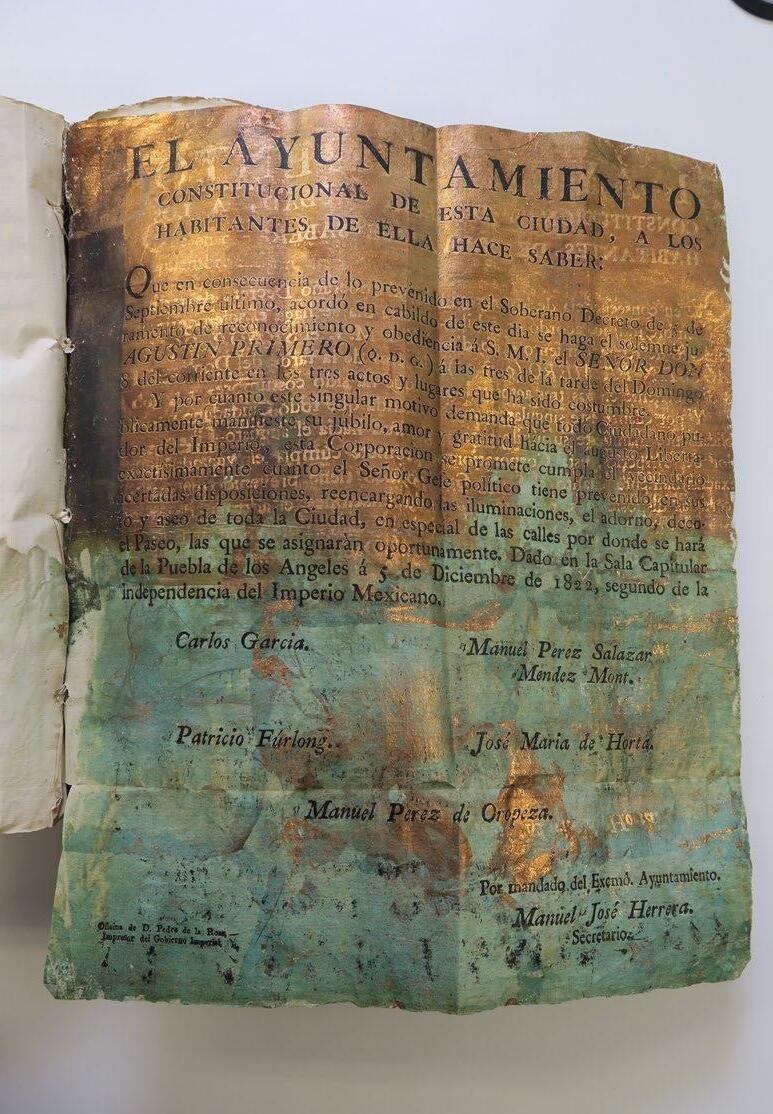 EL AYUNTAMIENTO
CONSTITUCIONAL DE ESTA CIUDAD, A LOS
HABITANTES DE ELLA HACE SABER:
Que en consecuencia de lo prevenido en el Soberano Decreto de 5 de
Septiembre último, acordó en cabildo de este dia se haga el solemne ju-
ramento de reconocimiento y obediencia á S. M. I. el SEÑOR DON
AGUSTIN PRIMERO (Q. D. G.) á las tres de la tarde del Domingo
8 del corriente en los tres actos y lugares que ha sido costumbre.
Y por cuanto este singular motivo demanda que todo Ciudadano pu-
blicamente manifieste su júbilo, amor y gratitud hácia el augusto Liberta-
dor del Imperio, esta Corporacion se promete cumpla el vecindario
exactísimamente cuanto el Señor Gefe político tiene prevenido en sus
acertadas disposiciones, reencargando las iluminaciones, el adorno, deco-
ro y aseo de toda la Ciudad, en especial de las calles por donde se hará
el Paseo, las que se asignarán oportunamente. Dado en la Sala Capitular
de la Puebla de los Angeles á 5 de Diciembre de 1822, segundo de la
independencia del Imperio Mexicano.
Carlos Garcia.
Manuel Perez Salazar
Mendez Mont.
Patricio Fúrlong.
José Maria de Horta.
Manuel Perez de Oropeza.
Por mandado del Exemô. Ayuntamiento.
Manuel José Herrera.
Secretario.
Oficina de D. Pedro de la Rosa,
Impresor del Gobierno Imperial.